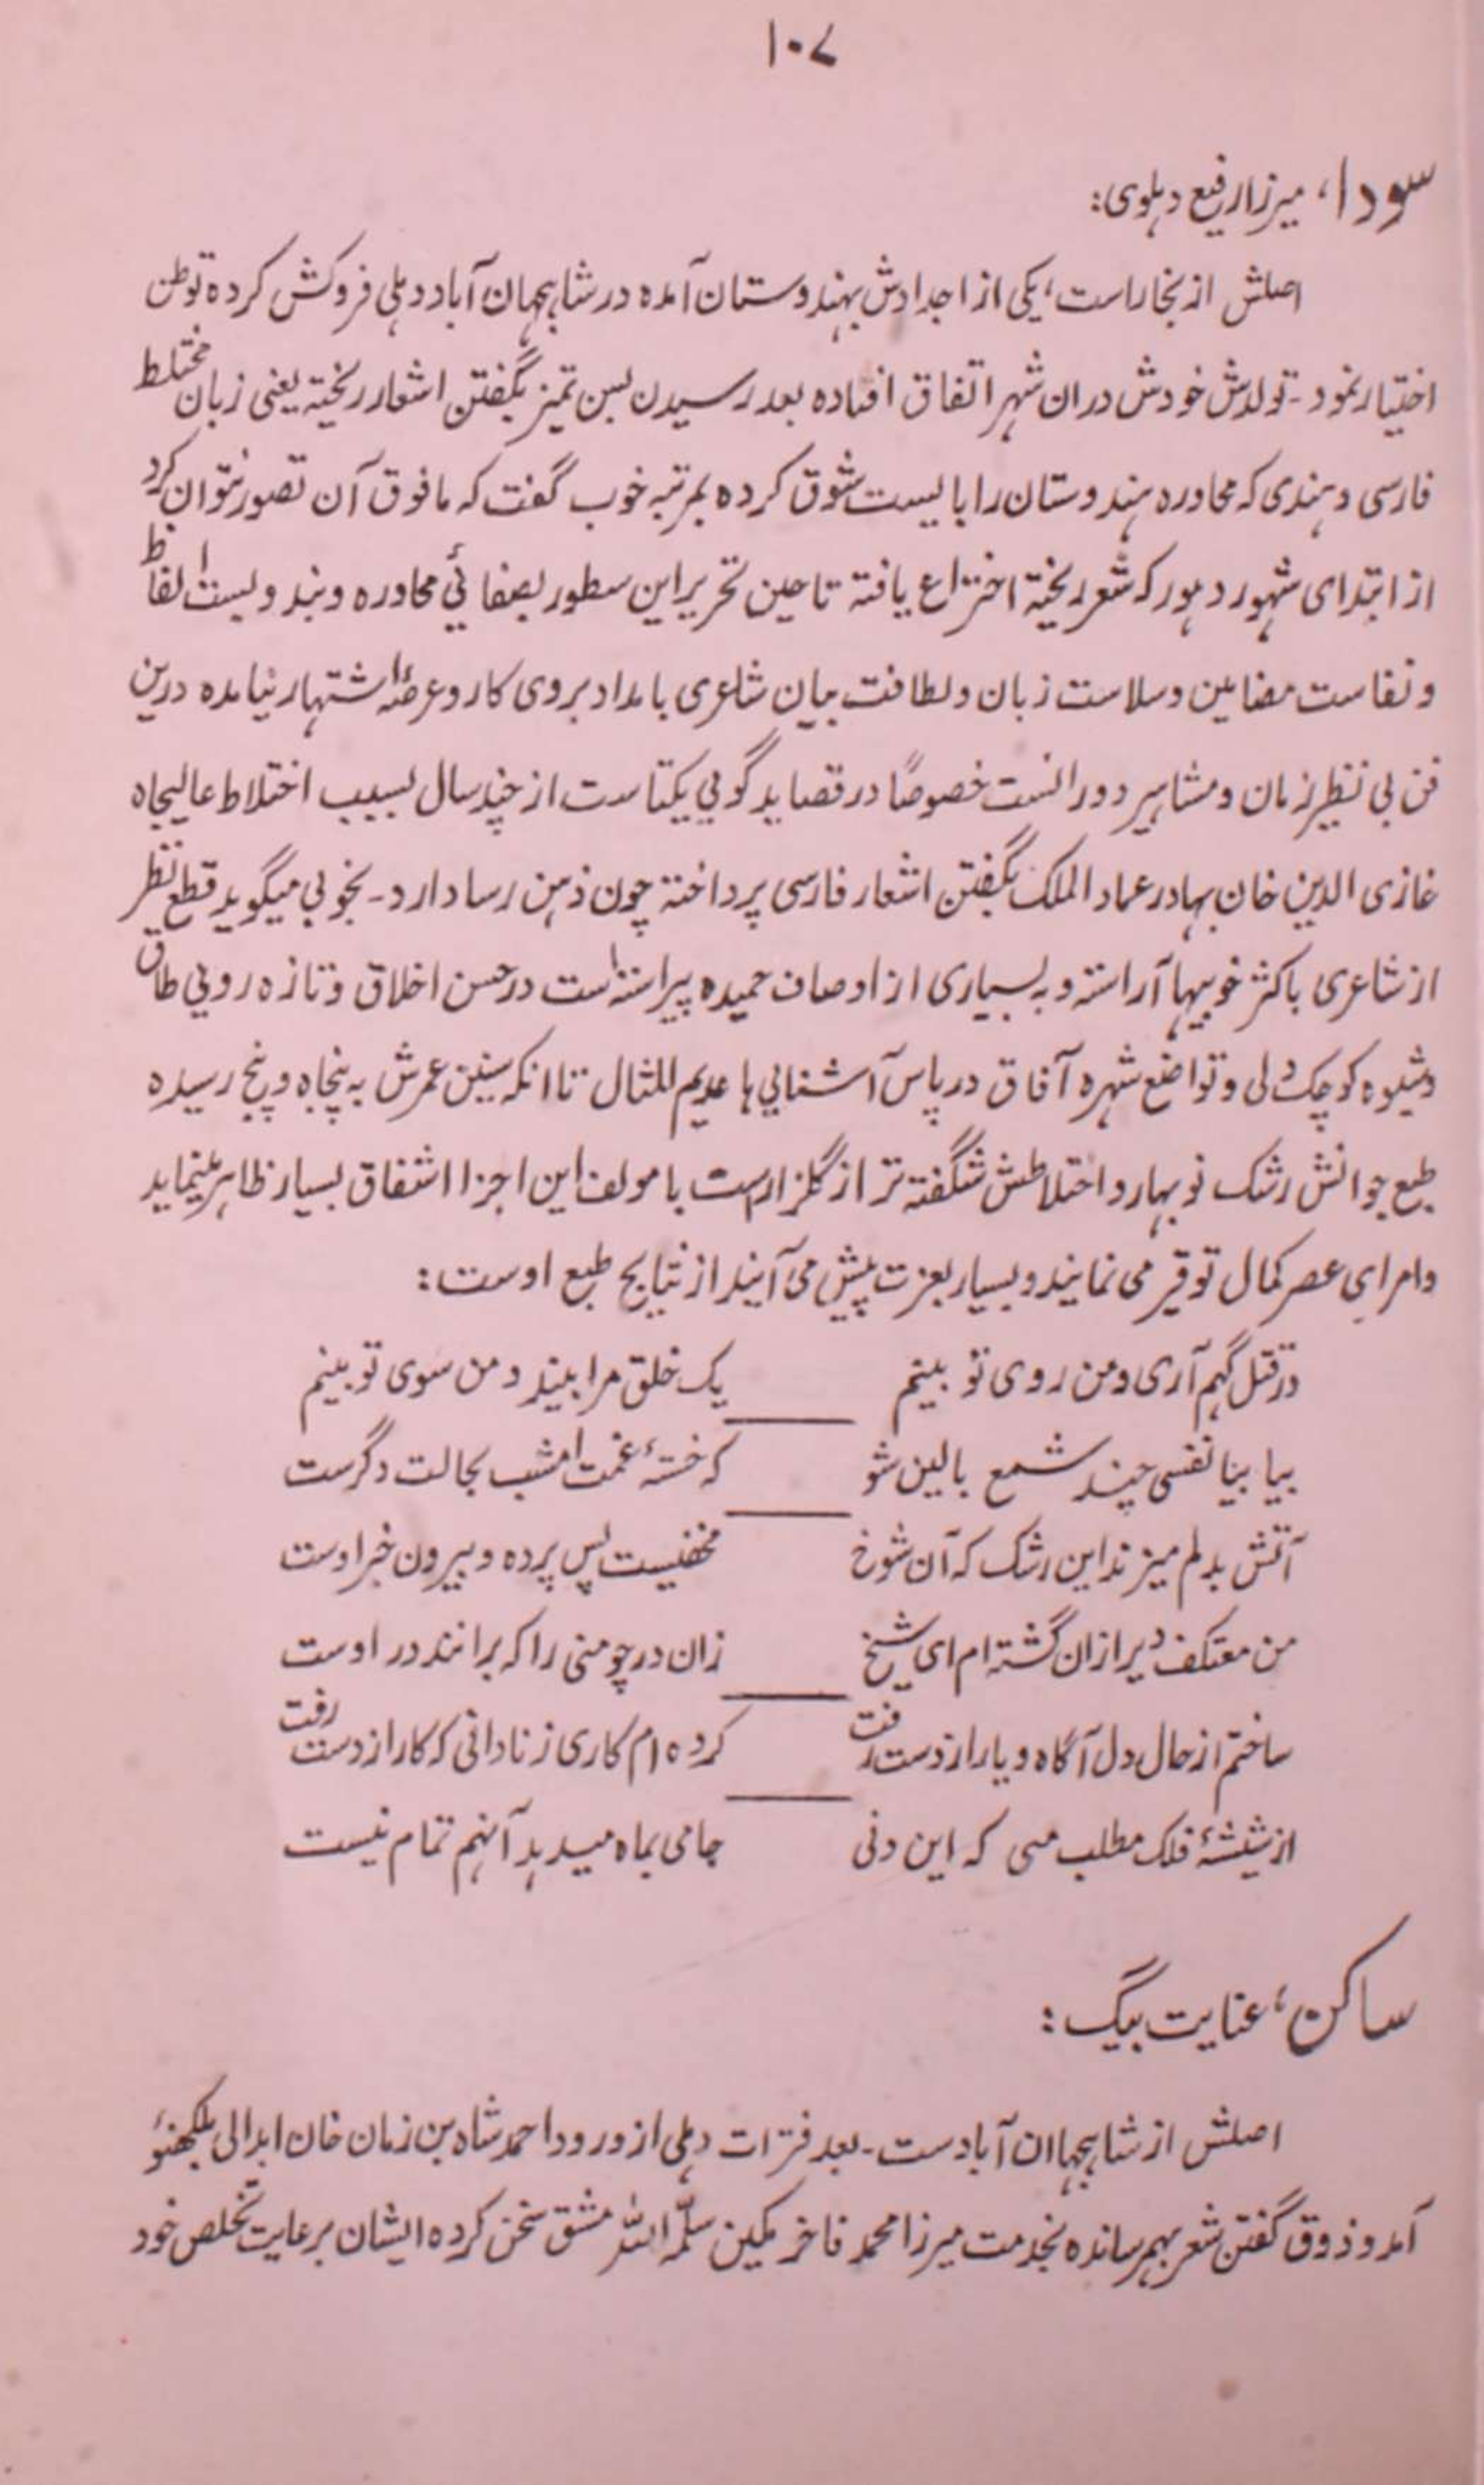 ۱۰۷
سودا، میرزا رفیع دہلوی:
اصلش از بخاراست، یکی از اجدادش بہندوستان آمدہ در شاہجہان آباد دہلی فروکش کردہ توطن
اختیار نمود - تولدش خودش دران شہر اتفاق افتادہ بعد رسیدن بسن تمیز بگفتن اشعار ریختہ یعنی زبان مختلط
فارسی و ہندی کہ محاورہ ہندوستان را بایست شوق کردہ بمرتبہ خوب گفت کہ مافوق آن تصور نتوان کرد
از ابتدای شہور و دہور کہ شعر ریختہ اختراع یافتہ تا حین تحریر این سطور بصفائی محاورہ و بند و بست الفاظ
و نفاست مضامین و سلاست زبان و لطافت بیان شاعری بامداد بروی کار و عرصۂ اشتہار نیامدہ درین
فن بی نظیر زمان و مشاہیر دورانست خصوصًا در قصاید گویی یکتاست از چند سال بسبب اختلاط عالیجاہ
غازی الدین خان بہادر عماد الملک بگفتن اشعار فارسی پرداختہ چون ذہن رسا دارد - بخوبی میگوید قطع نظر
از شاعری باکثر خوبیہا آراستہ و بہ بسیاری از اوصاف حمیدہ پیراستہ است در حسن اخلاق و تازہ رویی طاق
و شیوہ کوچک دلی و تواضع شہرہ آفاق در پاس آشنایی ہا عدیم المثال تا انکہ سنین عمرش بہ پنجاہ و پنج رسیدہ
طبع جوانش رشک نوبہار و اختلاطش شگفتہ تر از گلزارست با مولف این اجزا اشفاق بسیار ظاہر مینماید
و امرای عصر کمال توقیر می نمایند و بسیار بعزت پیش می آیند از نتایج طبع اوست:
در قتل گہم آری و من روی تو بینم یک خلق مرا بیند و من سوی تو بینم
بیا بیا نفسی چند شمع بالین شو کہ خستۂ غمت امشب بحالت دگرست
آتش بدلم میزند این رشک کہ آن شوخ مخفیست پس پردہ و بیرون خبر اوست
من معتکف دیر ازان گشتہ ام ای شیخ زان در چو منی را کہ برانند در اوست
ساختم از حال دل آگاہ و یار از دست رفت کردہ ام کاری ز نادانی کہ کار از دست رفت
از شیشۂ فلک مطلب می کہ این دنی جامی بماہ میدہد آنہم تمام نیست
ساکن، عنایت بیگ:
اصلش از شاہجہاان آبادست - بعد فترات دہلی از ورود احمد شاہ بن زمان خان ابدالی بلکھنؤ
آمد و ذوق گفتن شعر بہم رساندہ بخدمت میرزا محمد فاخر مکین سلمہ اللہ مشق سخن کردہ ایشان برعایت تخلص خود